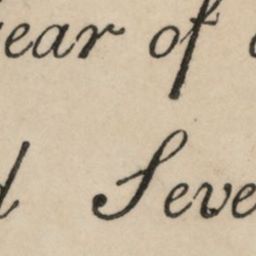 year of
d Seve